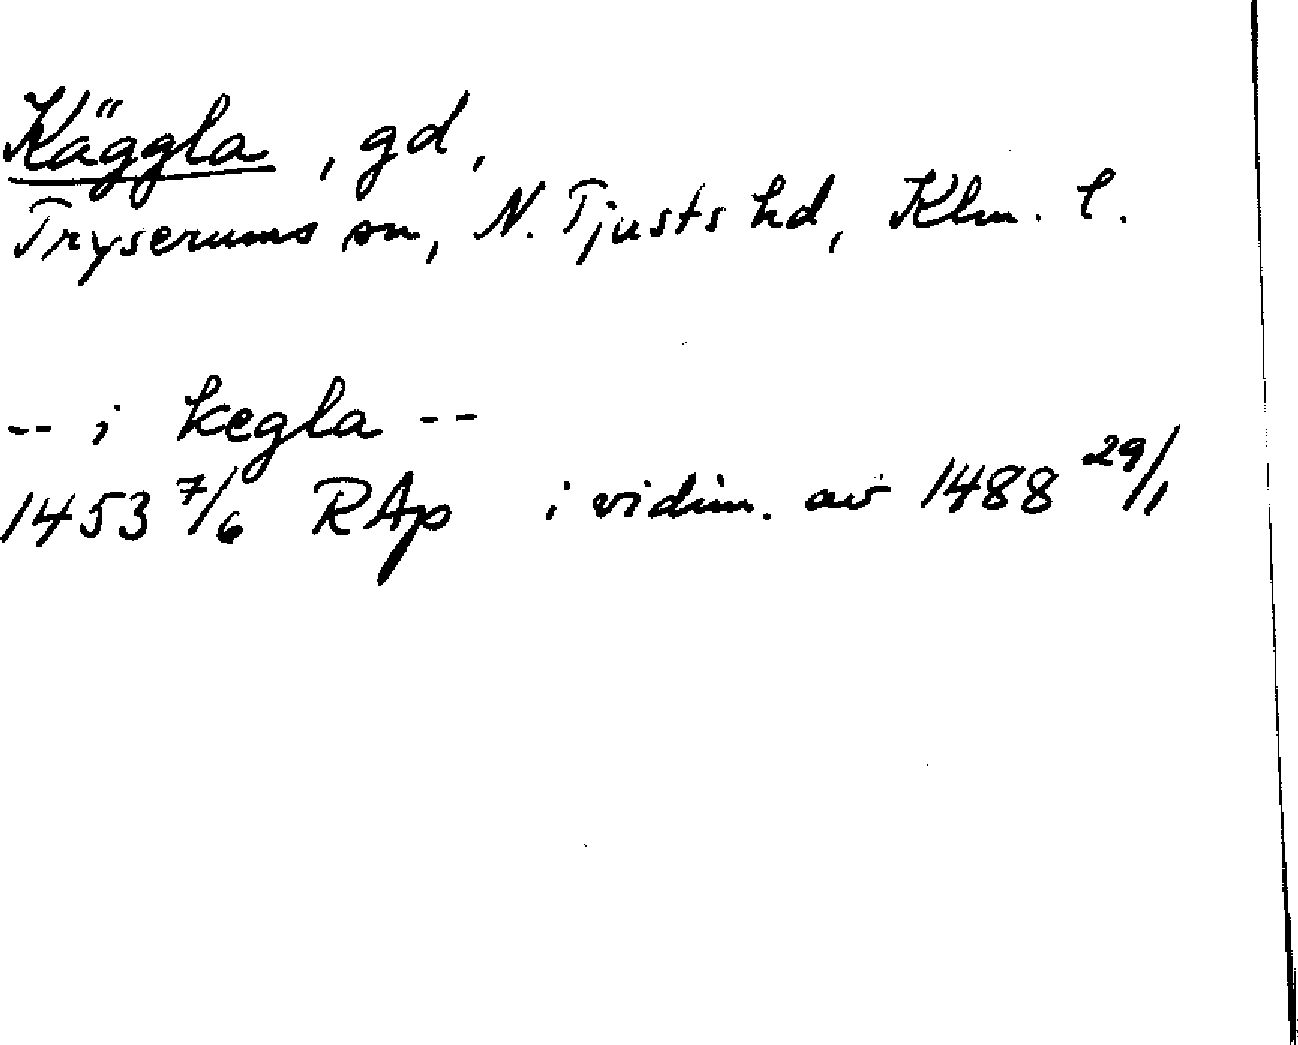 Käggla, gd,
Tryserums sn, N. Tjusts hd, Klm. l.
-- i kegla --
1453 7/6 RAp i vidim. av 1488 29/1